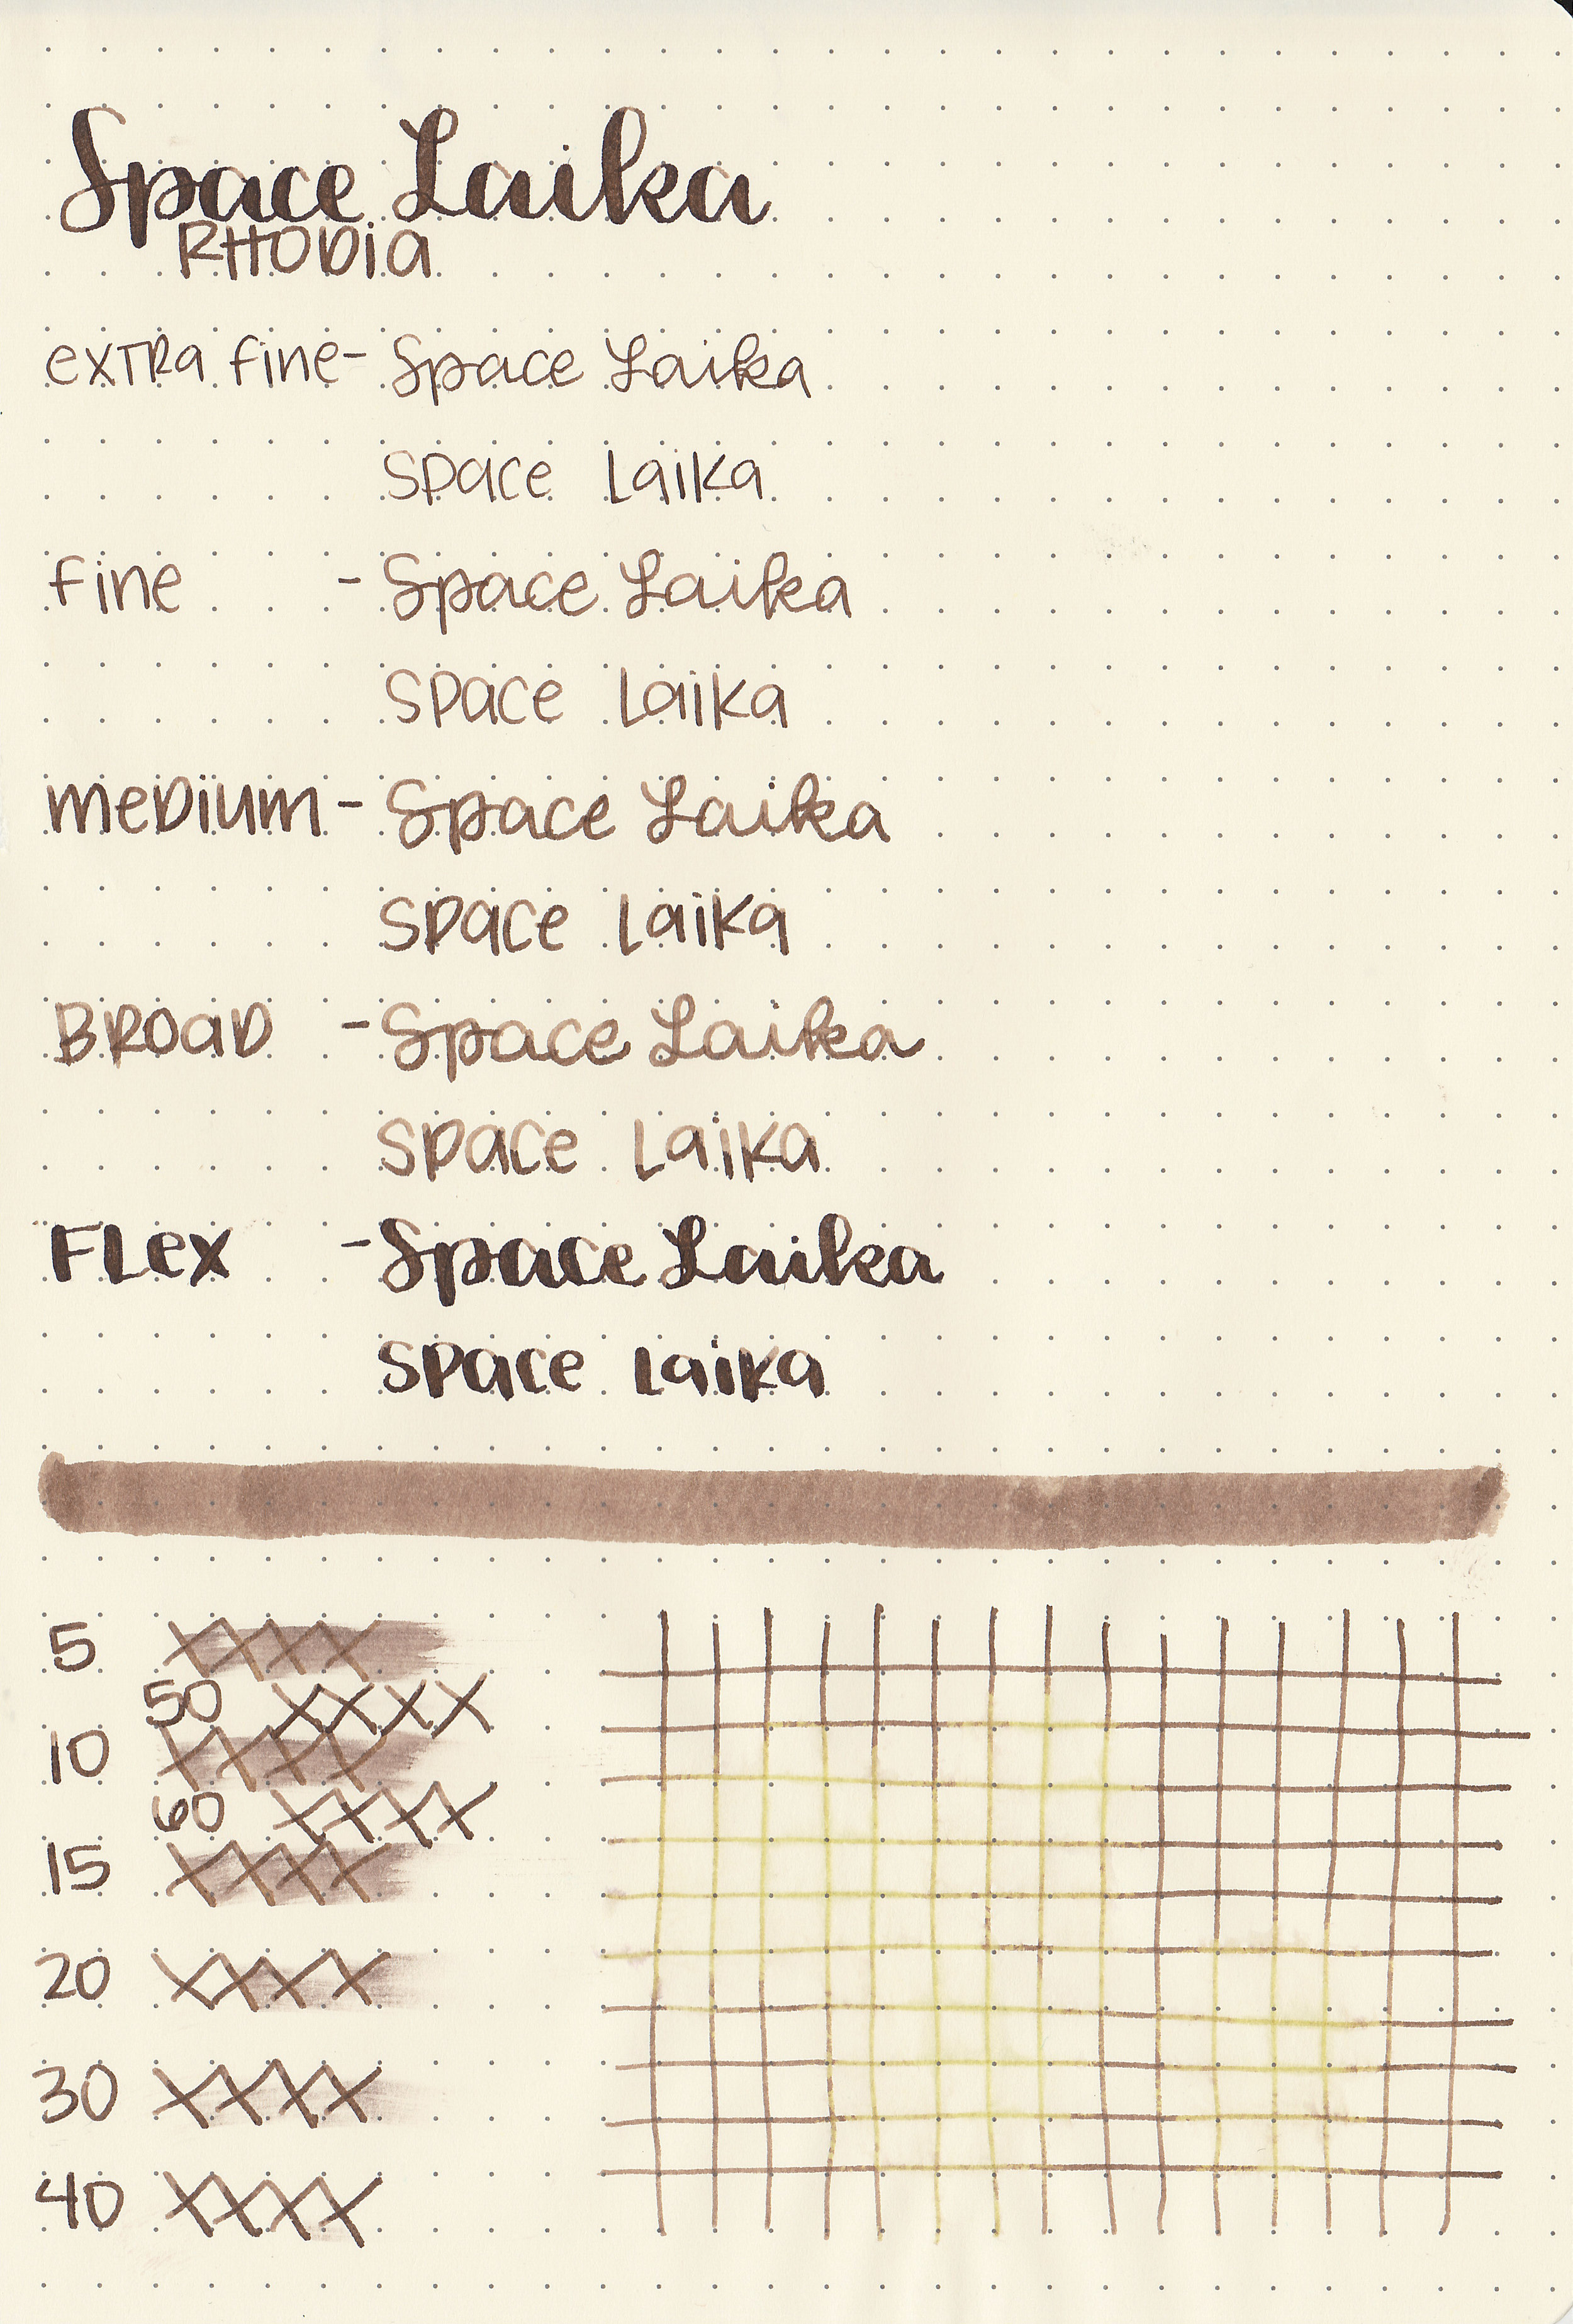 Space Laika
RHODIA
extra fine - Space Laika
Space Laika
fine - Space Laika
Space Laika
medium - Space Laika
Space Laika
Broad - Space Laika
Space Laika
Flex - Space Laika
Space Laika
5 XXXX
50 XXXX
10 XXXX
60 XXXX
15 XXXX
20 XXXX
30 XXXX
40 XXXX